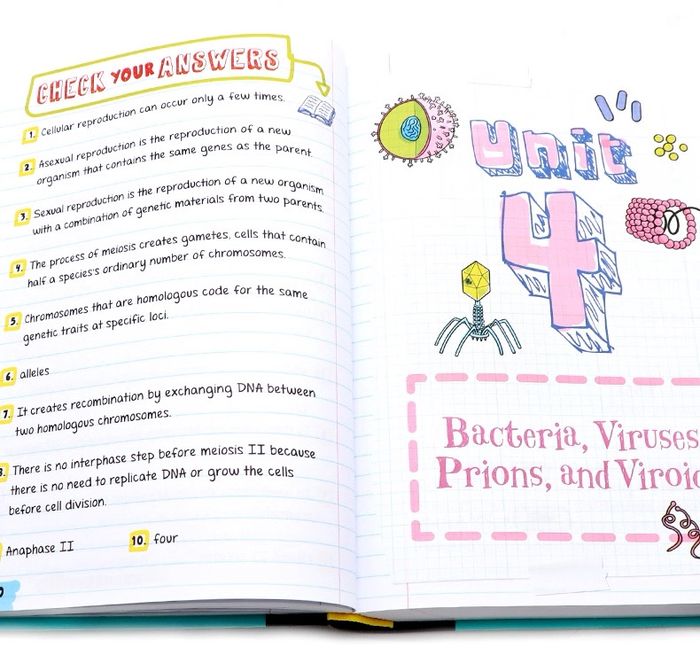 CHECK YOUR ANSWERS
1. Cellular reproduction can occur only a few times.
2. Asexual reproduction is the reproduction of a new
organism that contains the same genes as the parent.
3. Sexual reproduction is the reproduction of a new organism
with a combination of genetic materials from two parents.
4. The process of meiosis creates gametes, cells that contain
half a species's ordinary number of chromosomes.
5. Chromosomes that are homologous code for the same
genetic traits at specific loci.
6. alleles
7. It creates recombination by exchanging DNA between
two homologous chromosomes.
8. There is no interphase step before meiosis II because
there is no need to replicate DNA or grow the cells
before cell division.
Anaphase II
10. four
Unit
4
Bacteria, Viruses
Prions, and Viroid